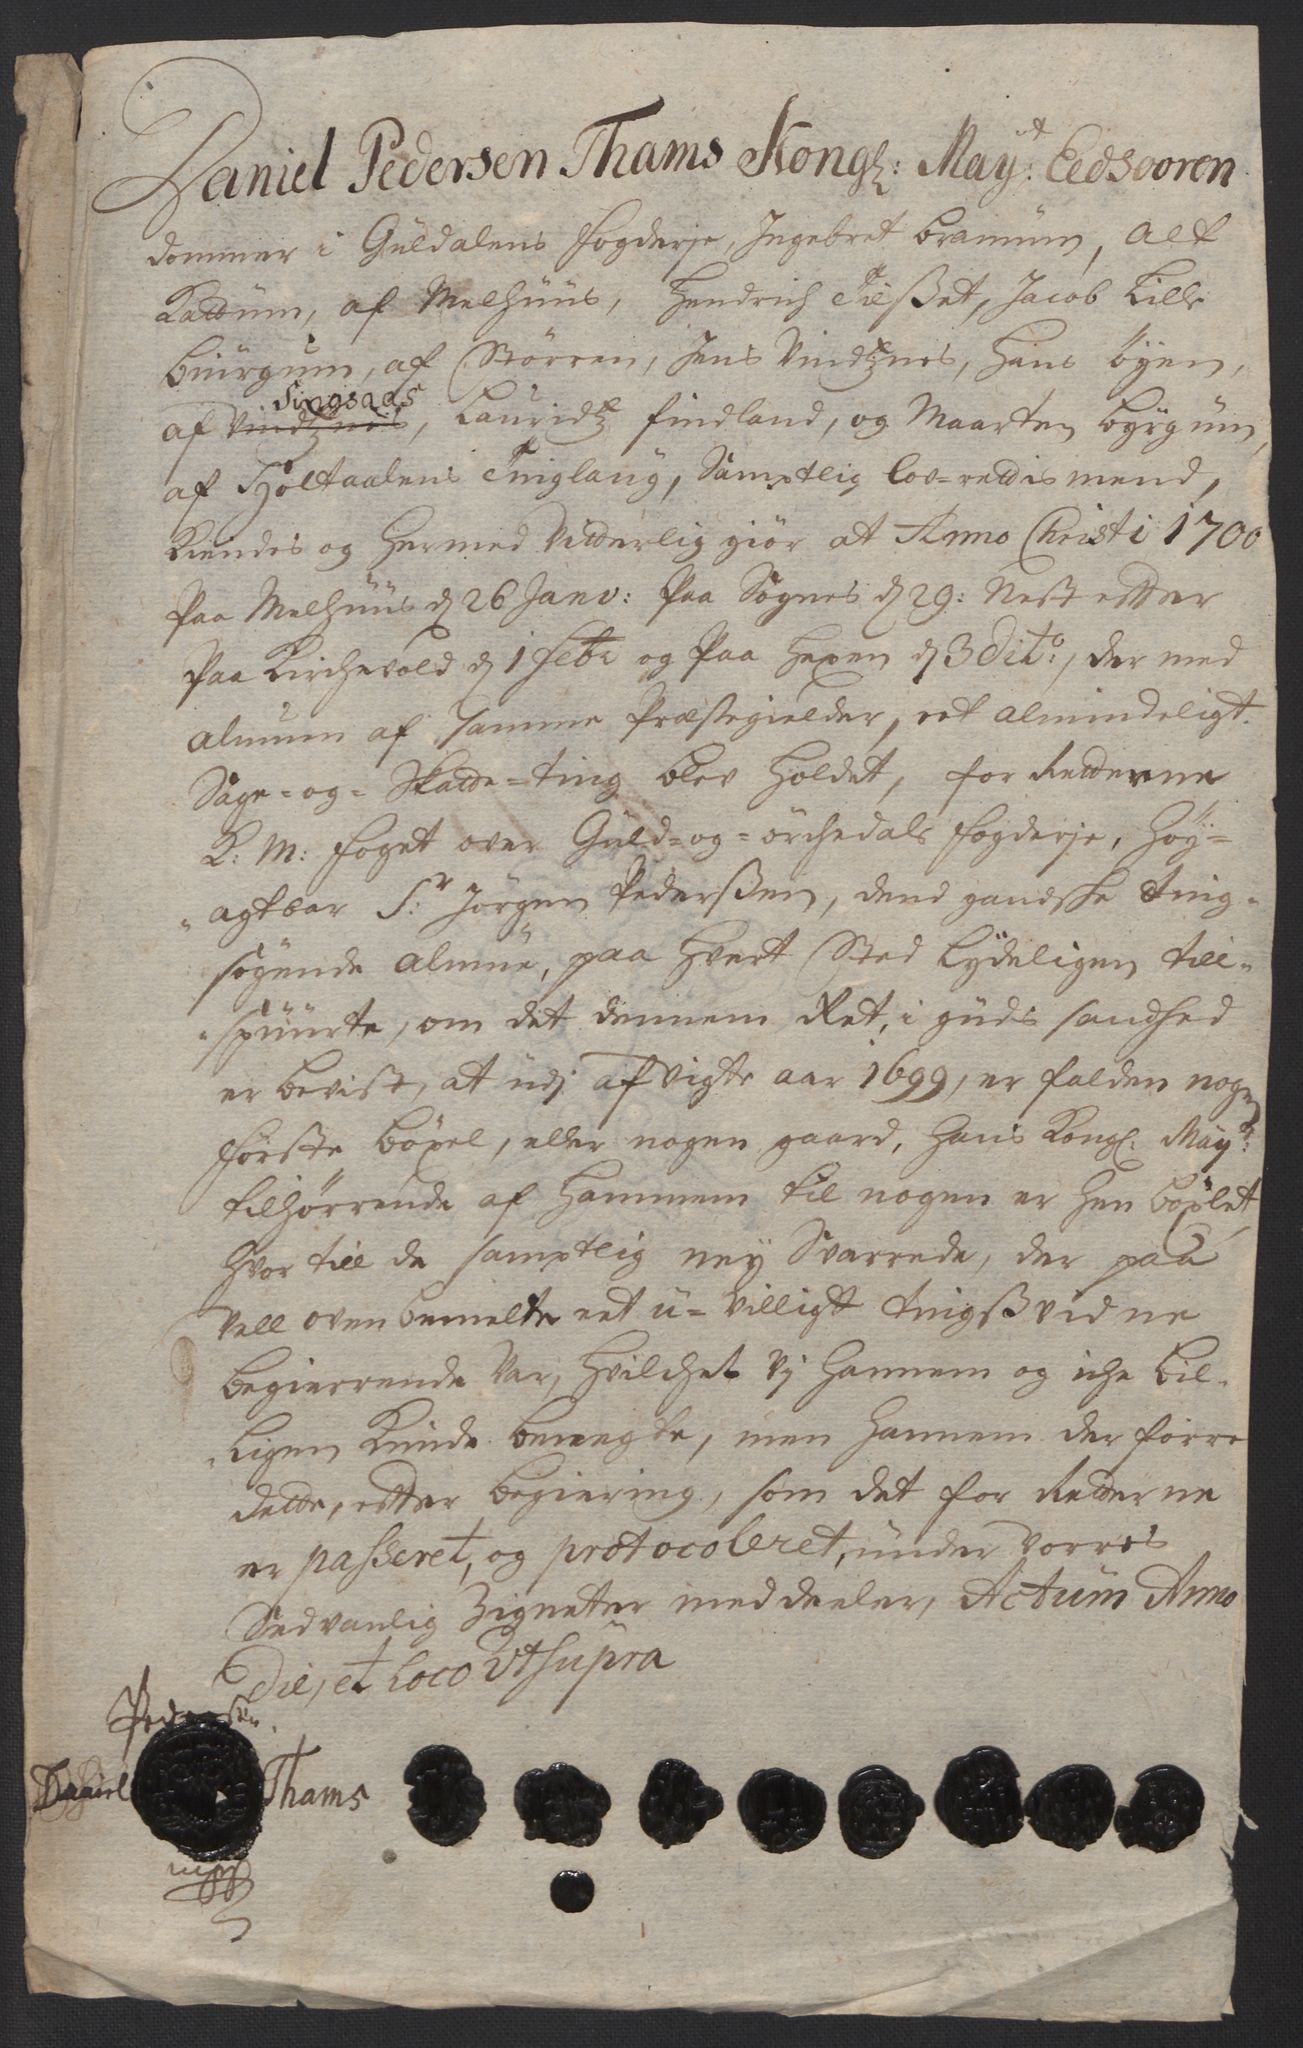 Daniel Pedersen Thams Kongl: May:t Eedsvoren
dommer i Guldalens fogderje, Ingebret bramum, Alf
Kattum, af Melhuus, Hendrich Tilßet, Jacob Lille
biurgum, af Størren, Jens Vindtznes, Hans Øyen,
af Vindtznes Singsaas, Lauridtz findland, og Maarten byrgum,
af Holtaalens Tinglaug, Samptlig lov-rettis mend,
Kiendes og hermed Vitterlig giör at Anno Christi 1700
Paa Melhuus d 26 Janv: Paa Sognes d 29: Nest etter
Paa Kirchevold d 1 febr og Paa Hexem d 3 Dito:, der med
almuen af samme Præstegielder, ret almindeligt
Sage-og-Skatte-ting blev holdet, for Retterne
K: M: foget over Guld-og-örchedals fogderje, Höy-
agtbar Sr: Jörgen Pederßen, dend gandske ting-
sögende almue, paa hvert Sted lydeligen till-
spuurte, om det dennem Ret, i guds sandhed
er bevist, at udj afvigte aar 1699, er falden nogen
förste böxel, eller nogen gaard, Hans Kongl. Mayts:
tilhörrende af hannem til nogen er hen böxlet,
hvor till de samptlig ney Svarrede, der paa
Vell ovenbemelte et u-villigt tingßvidne
begierrende var, hvilchet Vj hannem og iche bil-
ligen kunde benegte, men hannem der forre
dette, etter begiering, som det for Retterne
er passeret, og protocolleret, under vorres
Sedvanlig Zigneter meddeeler, Actum Anno
Die, et Loco Ut supra
Pedersen
Daniel Thams
mpp